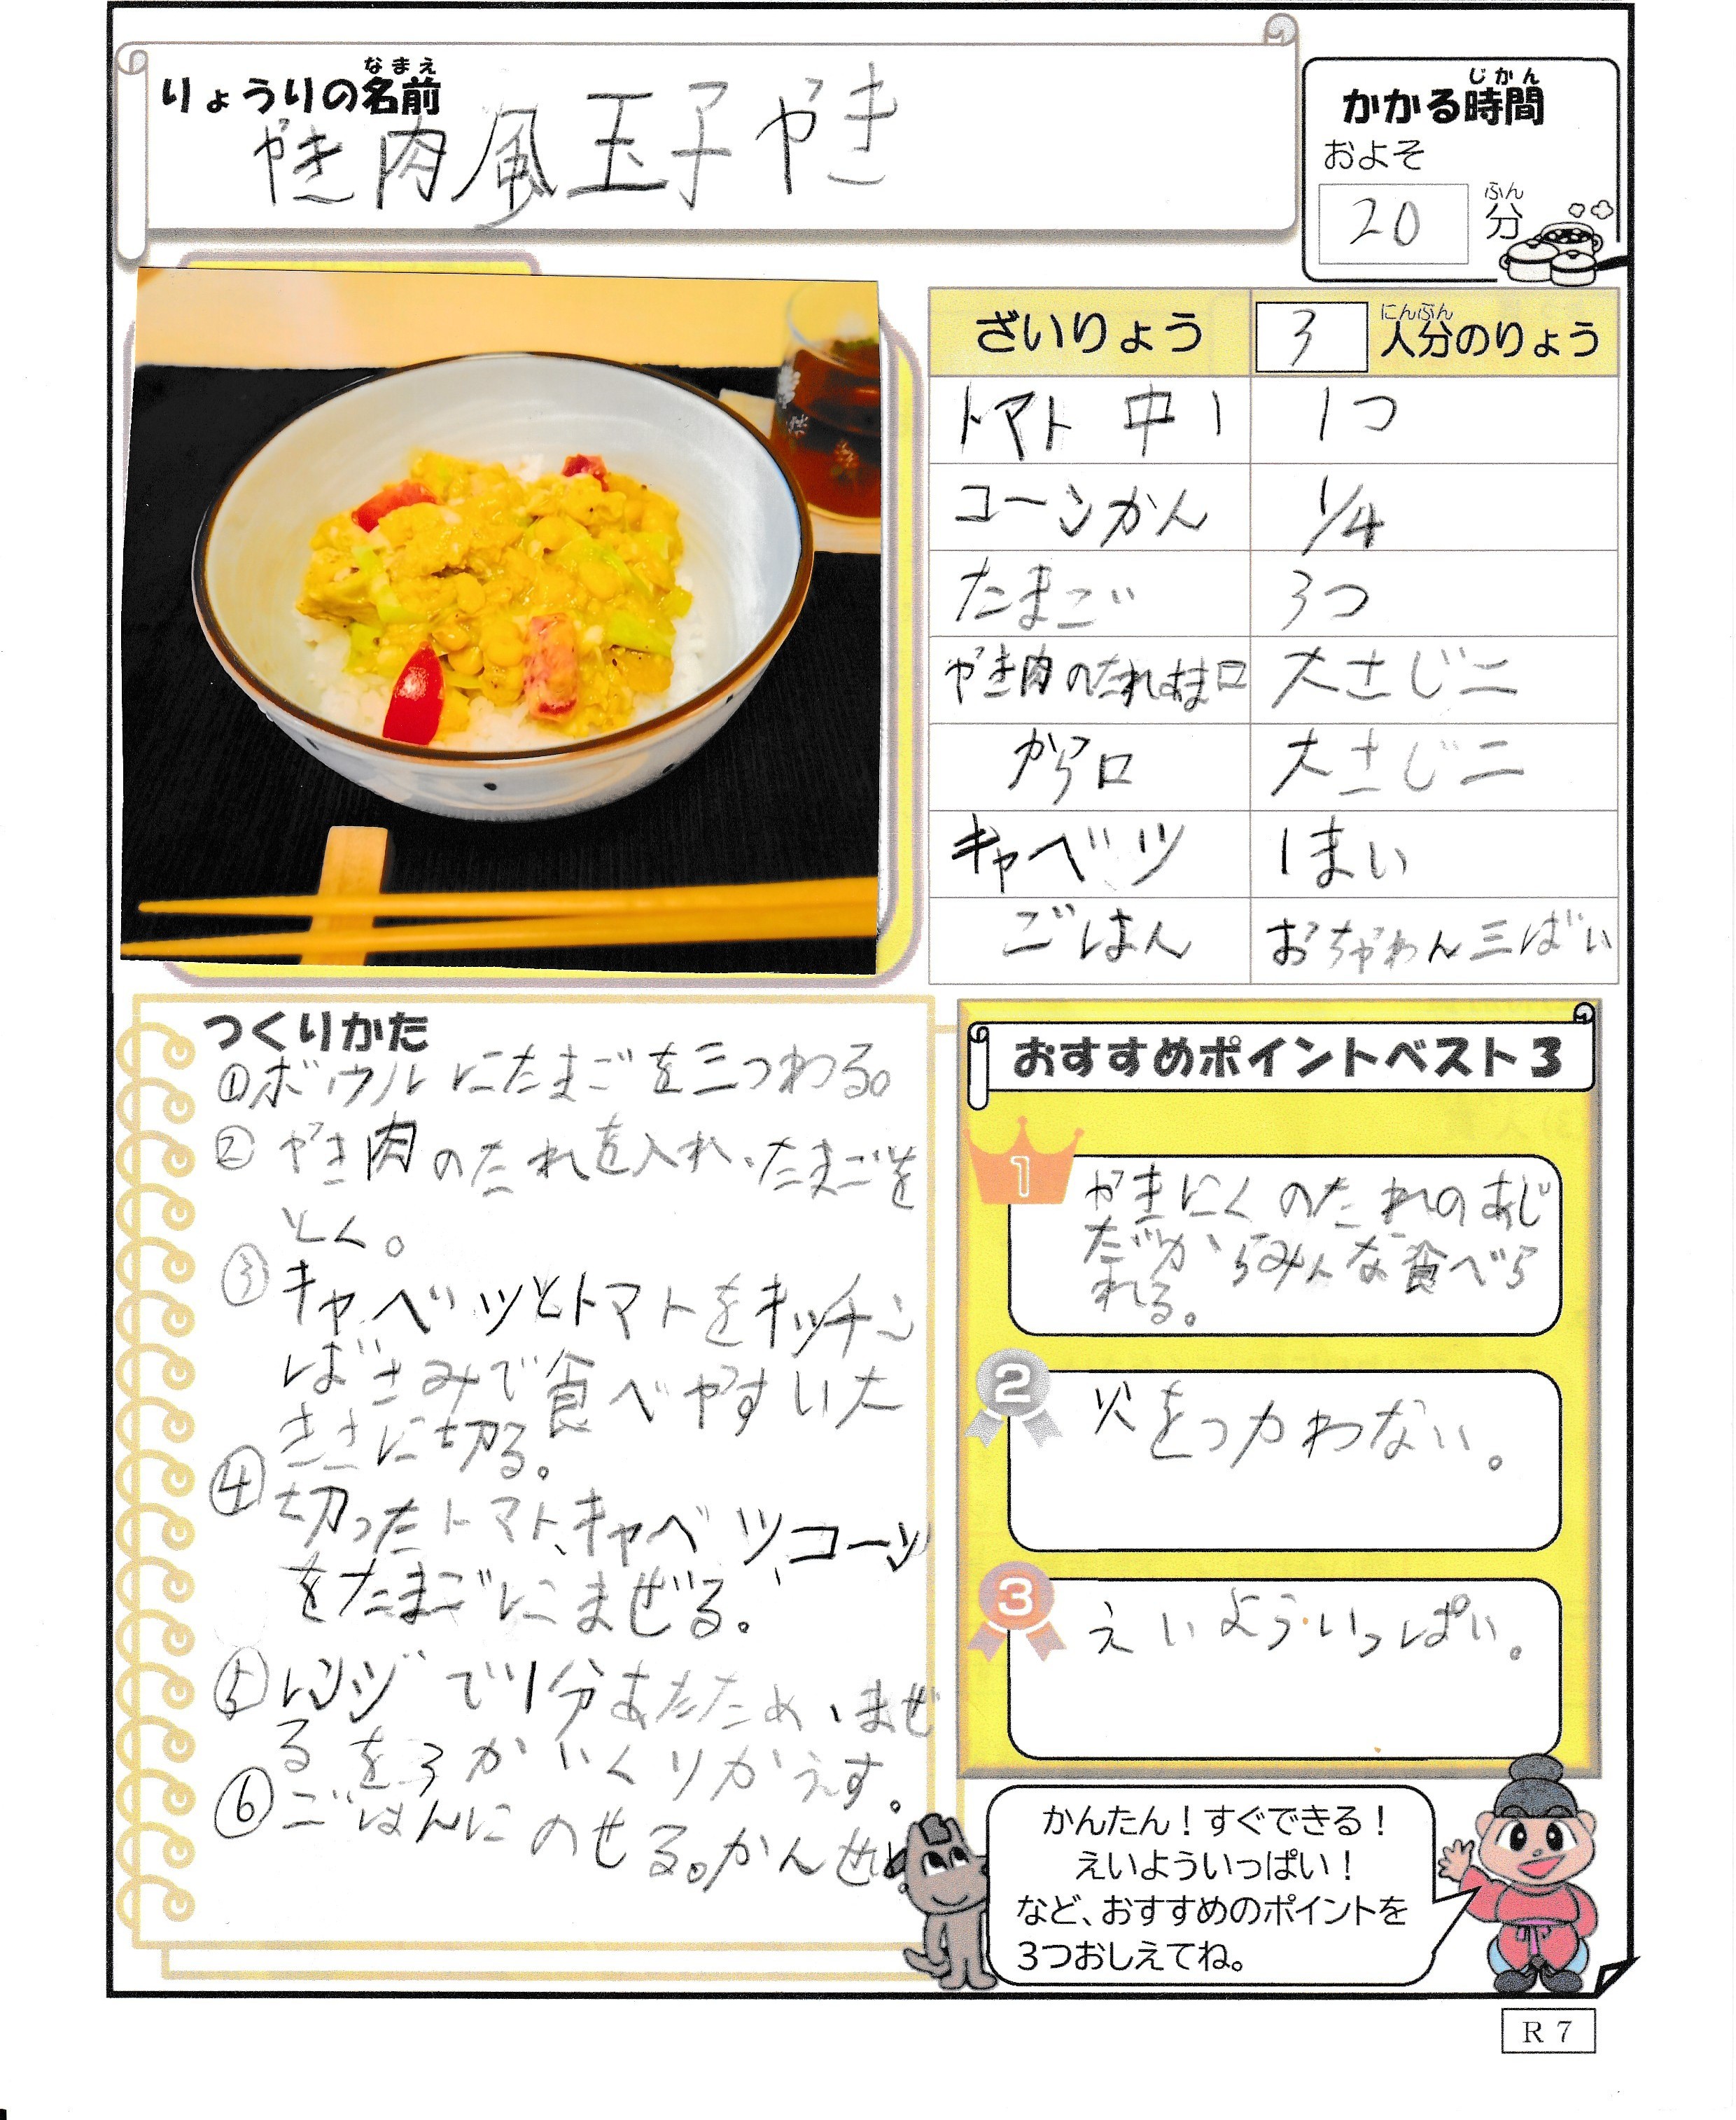 りょうりの名前
なまえ
やき肉風玉子やき
かかる時間
じかん
およそ
20
分
ふん
ざいりょう
3
人分のりょう
にんぶん
トマト 中1
1つ
コーンかん
1/4
たまご
3つ
やき肉のたれあま口
大さじ二
から口
大さじ二
キャベツ
1まい
ごはん
おちゃわん三ばい
つくりかた
①ボウルにたまごを三つわる。
②やき肉のたれを入れ、たまごを
とく。
③キャベツとトマトをキッチン
ばさみで食べやすい大
きさに切る。
④切ったトマト、キャベツ、コーン
をたまごにまぜる。
⑤レンジで1分あたため、まぜ
るを3かいくりかえす。
⑥ごはんにのせる。かんせい。
おすすめポイントベスト3
1
やきにくのたれのあじ
だからみんな食べら
れる。
2
火をつかわない。
3
えいよういっぱい。
かんたん！すぐできる！
えいよういっぱい！
など、おすすめのポイントを
3つおしえてね。
R7